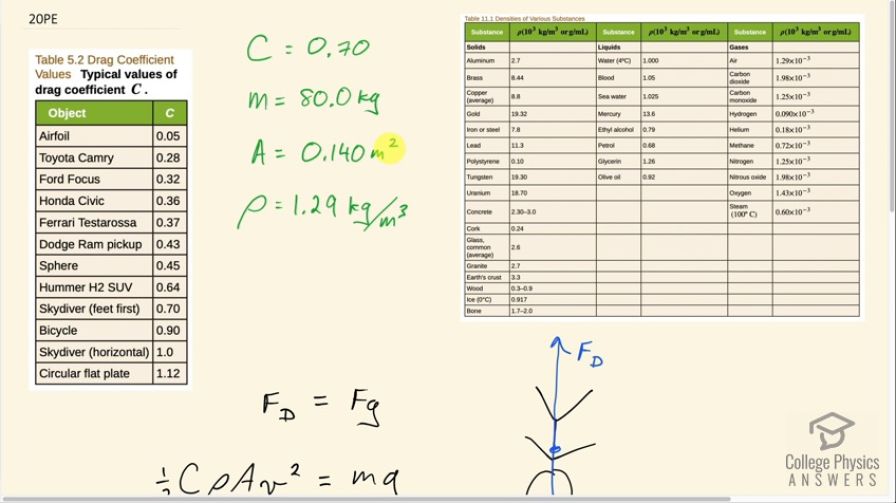 20PE
Table 5.2 Drag Coefficient
Values Typical values of
drag coefficient C .
Object C
Airfoil 0.05
Toyota Camry 0.28
Ford Focus 0.32
Honda Civic 0.36
Ferrari Testarossa 0.37
Dodge Ram pickup 0.43
Sphere 0.45
Hummer H2 SUV 0.64
Skydiver (feet first) 0.70
Bicycle 0.90
Skydiver (horizontal) 1.0
Circular flat plate 1.12
C = 0.70
m = 80.0 kg
A = 0.140 m²
ρ = 1.29 kg/m³
Table 11.1 Densities of Various Substances
Substance ρ(10³ kg/m³ or g/mL) Substance ρ(10³ kg/m³ or g/mL) Substance ρ(10³ kg/m³ or g/mL)
Solids Liquids Gases
Aluminum 2.7 Water (4ºC) 1.000 Air 1.29×10⁻³
Brass 8.44 Blood 1.05 Carbon dioxide 1.98×10⁻³
Copper (average) 8.8 Sea water 1.025 Carbon monoxide 1.25×10⁻³
Gold 19.32 Mercury 13.6 Hydrogen 0.090×10⁻³
Iron or steel 7.8 Ethyl alcohol 0.79 Helium 0.18×10⁻³
Lead 11.3 Petrol 0.68 Methane 0.72×10⁻³
Polystyrene 0.10 Glycerin 1.26 Nitrogen 1.25×10⁻³
Tungsten 19.30 Olive oil 0.92 Nitrous oxide 1.98×10⁻³
Uranium 18.70 Oxygen 1.43×10⁻³
Concrete 2.30–3.0 Steam (100º C) 0.60×10⁻³
Cork 0.24
Glass, common (average) 2.6
Granite 2.7
Earth's crust 3.3
Wood 0.3–0.9
Ice (0°C) 0.917
Bone 1.7–2.0
F_D
F_D = Fg
½ C ρ A v² = mg
College Physics
ANSWERS